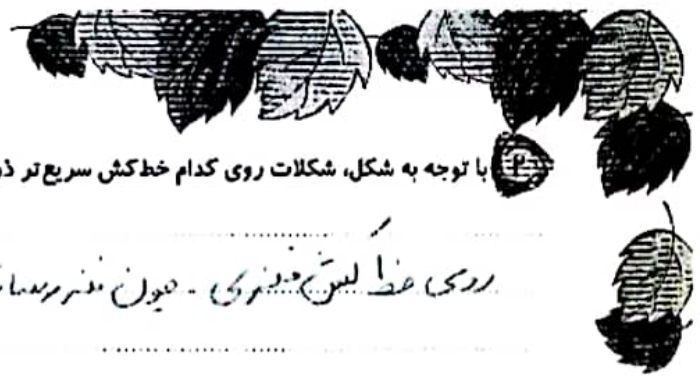 ۲ با توجه به شکل، شکلات روی کدام خط‌کش سریع‌تر
روی خط کش فلزی - چون فلز رسانا